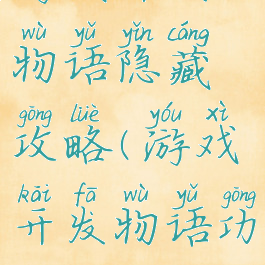 wù yǔ yǐn cáng
物语隐藏
gōng lüè yóu xì
攻略(游戏
kāi fā wù yǔ gōng
开发物语功